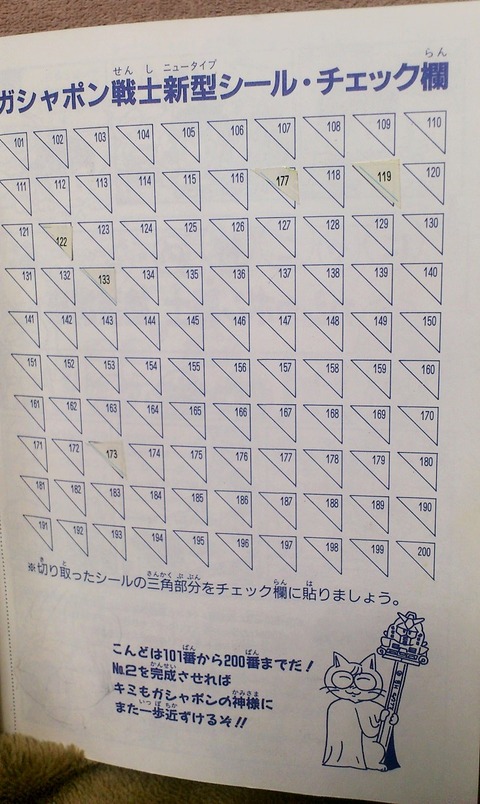 せん し ニュータイプ らん
ガシャポン戦士新型シール・チェック欄
101 102 103 104 105 106 107 108 109 110
111 112 113 114 115 116 177 118 119 120
121 122 123 124 125 126 127 128 129 130
131 132 133 134 135 136 137 138 139 140
141 142 143 144 145 146 147 148 149 150
151 152 153 154 155 156 157 158 159 160
161 162 163 164 165 166 167 168 169 170
171 172 173 174 175 176 177 178 179 180
181 182 183 184 185 186 187 188 189 190
191 192 193 194 195 196 197 198 199 200
き と さんかく ぶ ぶん らん は
※切り取ったシールの三角部分をチェック欄に貼りましょう。
ばん ばん
こんどは101番から200番までだ!
かんせい
No.2を完成させれば
かみさま
キミもガシャポンの神様に
いっ ぽ ちか
また一歩近ずけるぞ!!